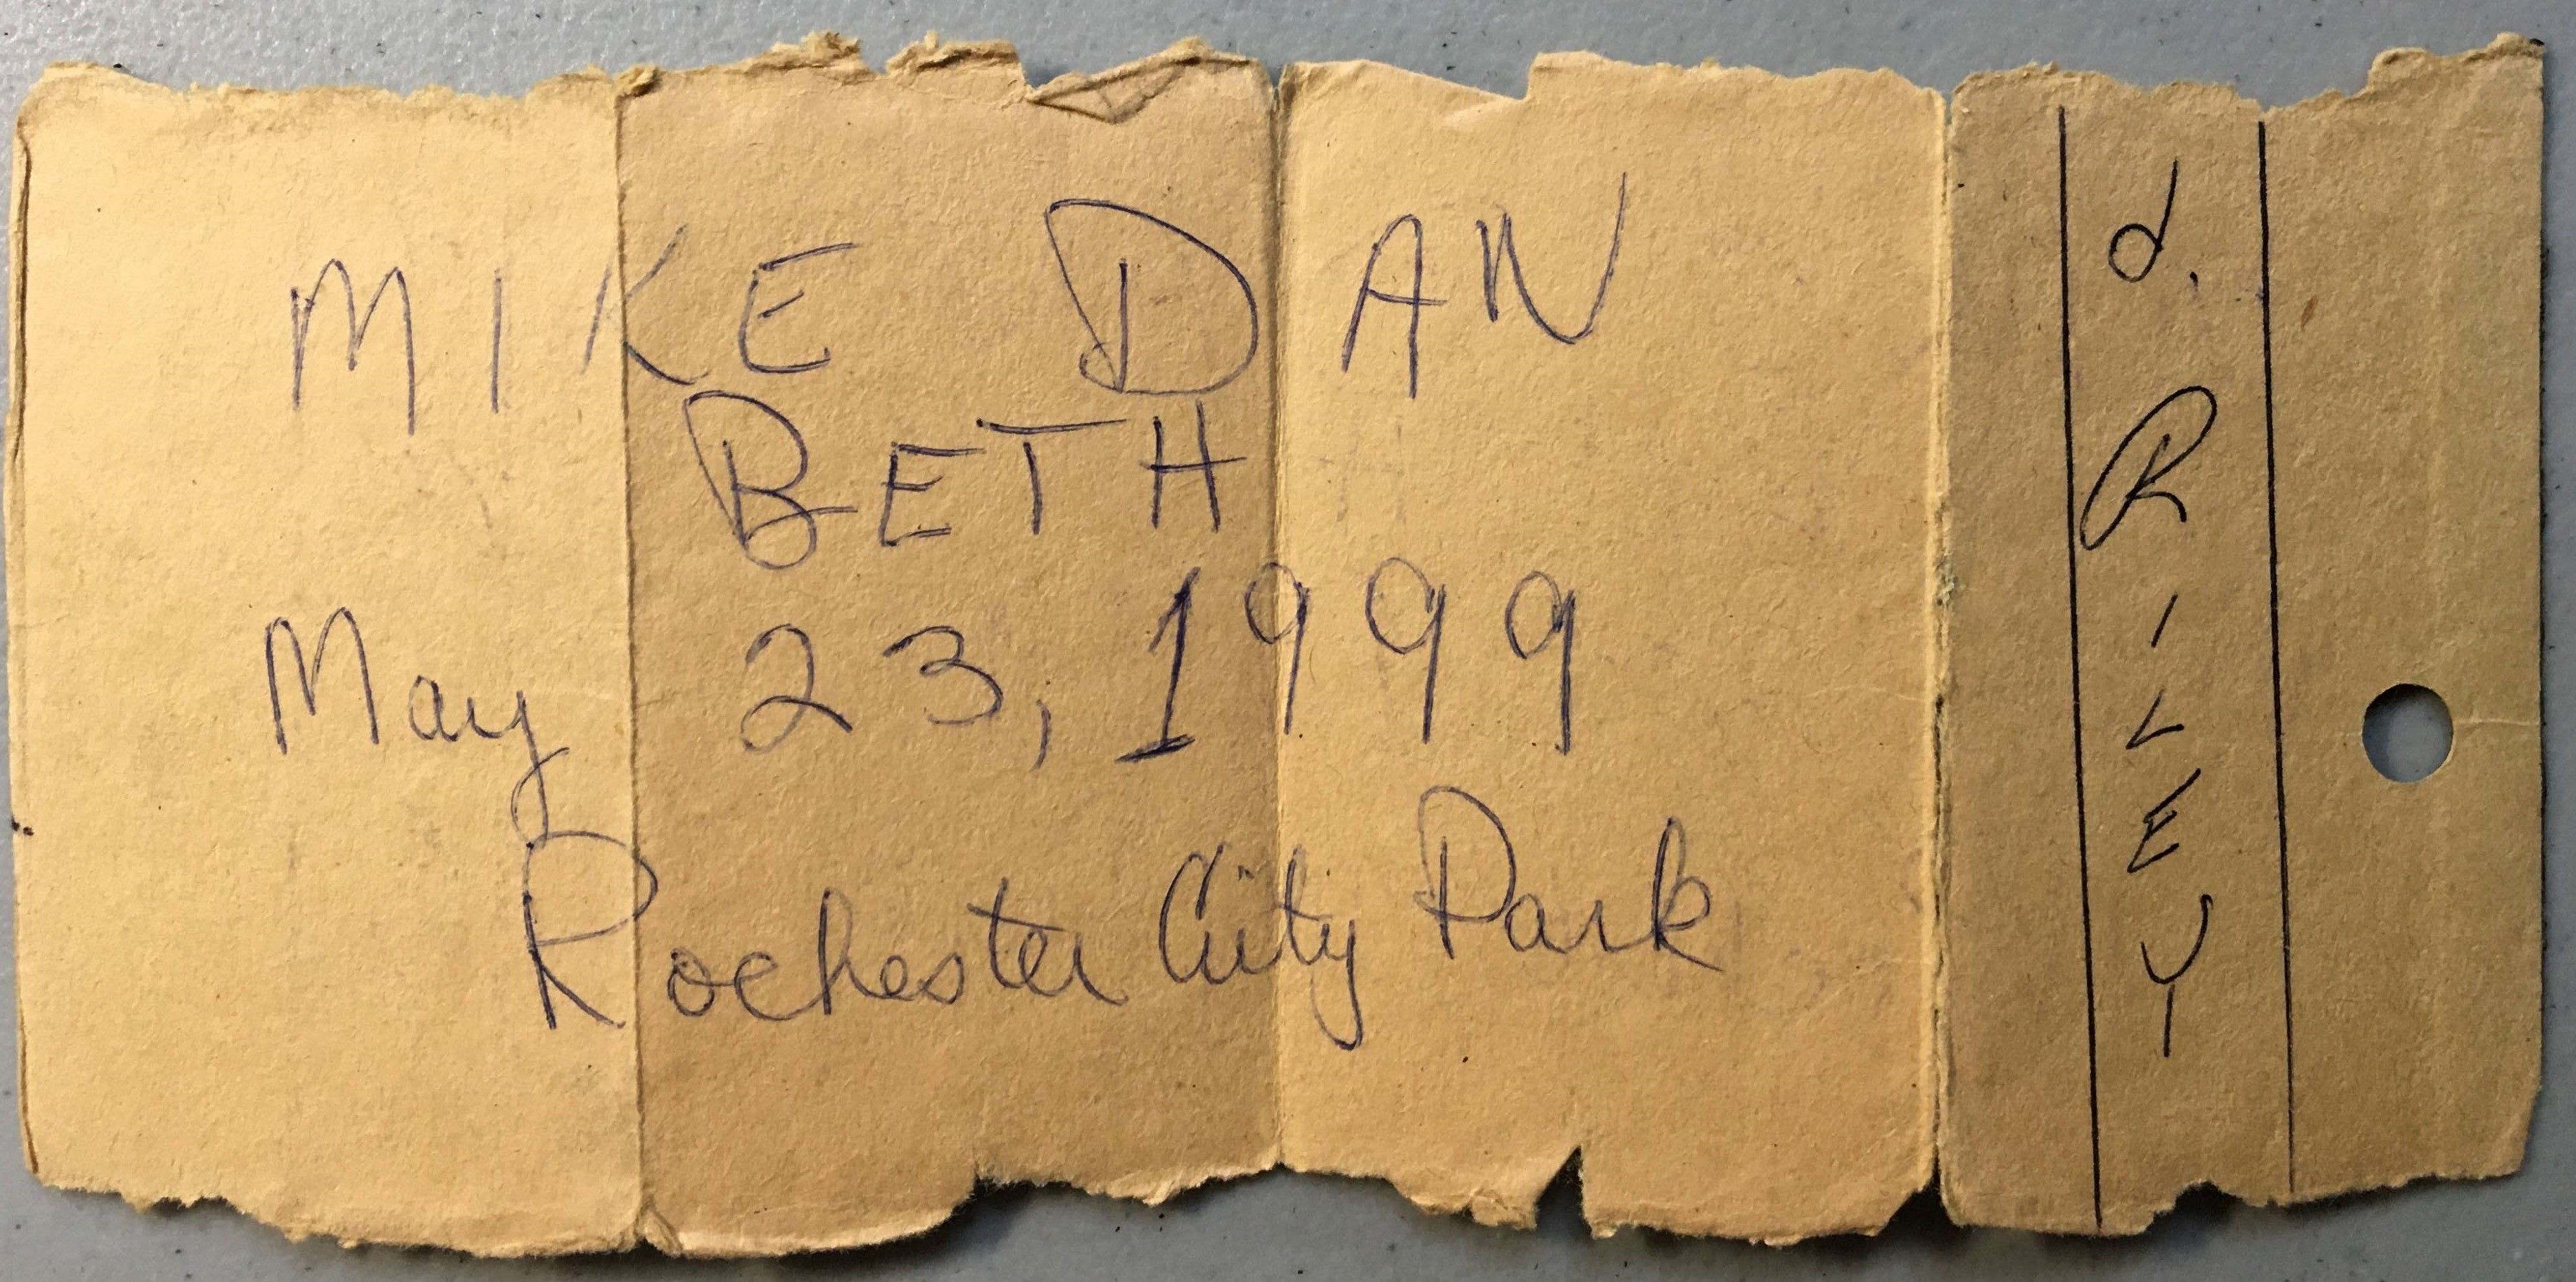 MIKE DAN
BETH
May 23, 1999
Rochester City Park
d. RILEY